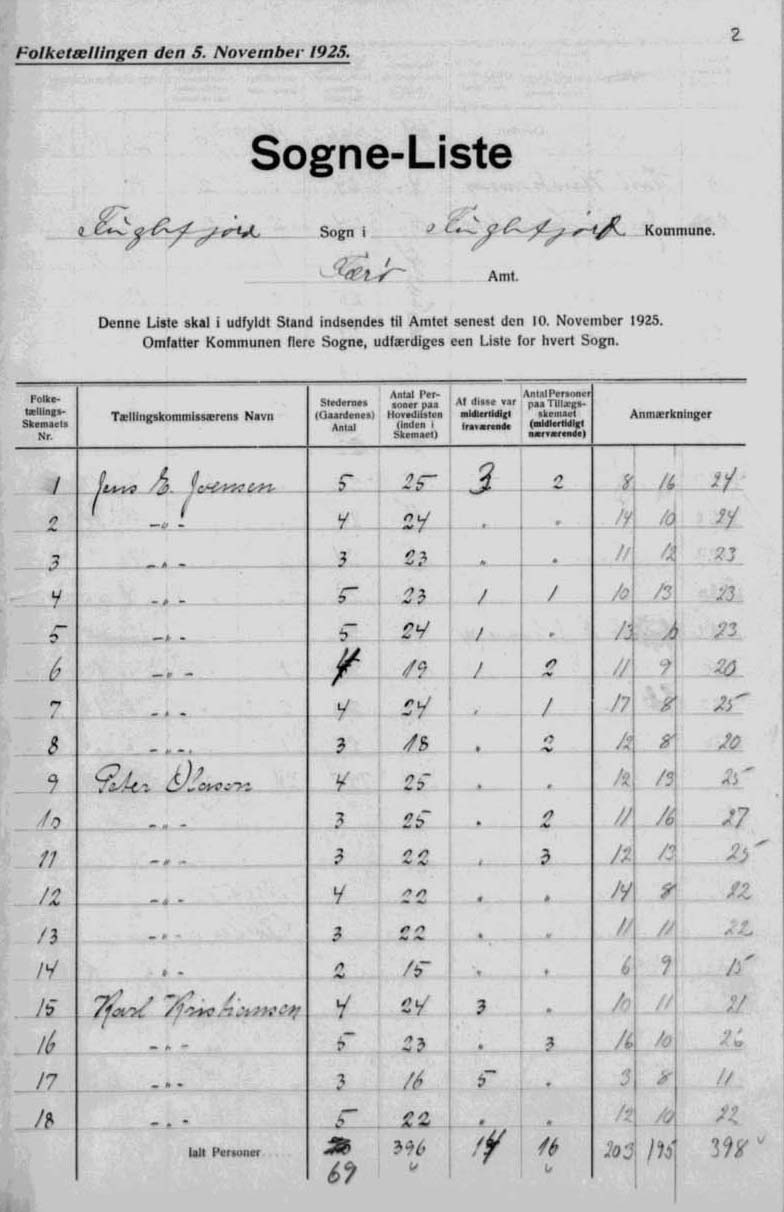 2
Folketællingen den 5. November 1925.
Sogne-Liste
Fuglefjord Sogn i Fuglefjord Kommune.
Færø Amt.
Denne Liste skal i udfyldt Stand indsendes til Amtet senest den 10. November 1925.
Omfatter Kommunen flere Sogne, udfærdiges een Liste for hvert Sogn.
Folketællings-Skemaets Nr. | Tællingskommissærens Navn | Stedernes (Gaardenes) Antal | Antal Personer paa Hovedlisten (inden i Skemaet) | Af disse var midlertidigt fraværende | Antal Personer paa Tillægsskemaet (midlertidigt nærværende) | Anmærkninger
1 Jens E. Joensen 5 25 3 2 8 16 24
2 - " - 4 24 " " 14 10 24
3 - " - 3 23 " " 11 12 23
4 - " - 5 23 1 1 10 13 23
5 - " - 5 24 1 " 13 10 23
6 - " - 4 19 1 2 11 9 20
7 - " - 4 24 " 1 17 8 25
8 - " - 3 18 " 2 12 8 20
9 Peter Olason 4 25 " " 12 13 25
10 - " - 3 25 " 2 11 16 27
11 - " - 3 22 " 3 12 13 25
12 - " - 4 22 " " 14 8 22
13 - " - 3 22 " " 11 11 22
14 " - 2 15 " " 6 9 15
15 Karl Kristiansen 4 24 3 " 10 11 21
16 - " - 5 23 " 3 16 10 26
17 - " - 3 16 5 " 3 8 11
18 - " - 5 22 " " 12 10 22
Ialt Personer 396 14 16 203 195 398
69